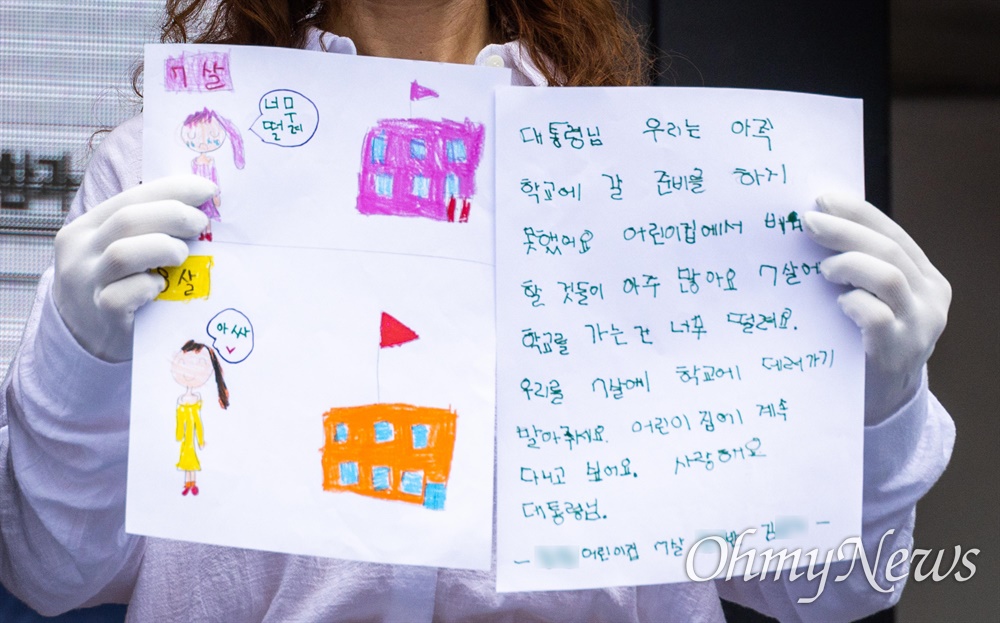 7살
너무
떨려
8살
아싸
대통령님 우리는 아직
학교에 갈 준비를 하지
못했어요 어린이집에서
할 것들이 아주 많아요 7살에
학교를 가는건 너무 떨려요.
우리를 7살에 학교에 데려가기
말아주세요. 어린이 집에 계속
다니고 싶어요. 사랑해요
대통령님.
- 어린이집 7살 반 김 -
OhmyNews